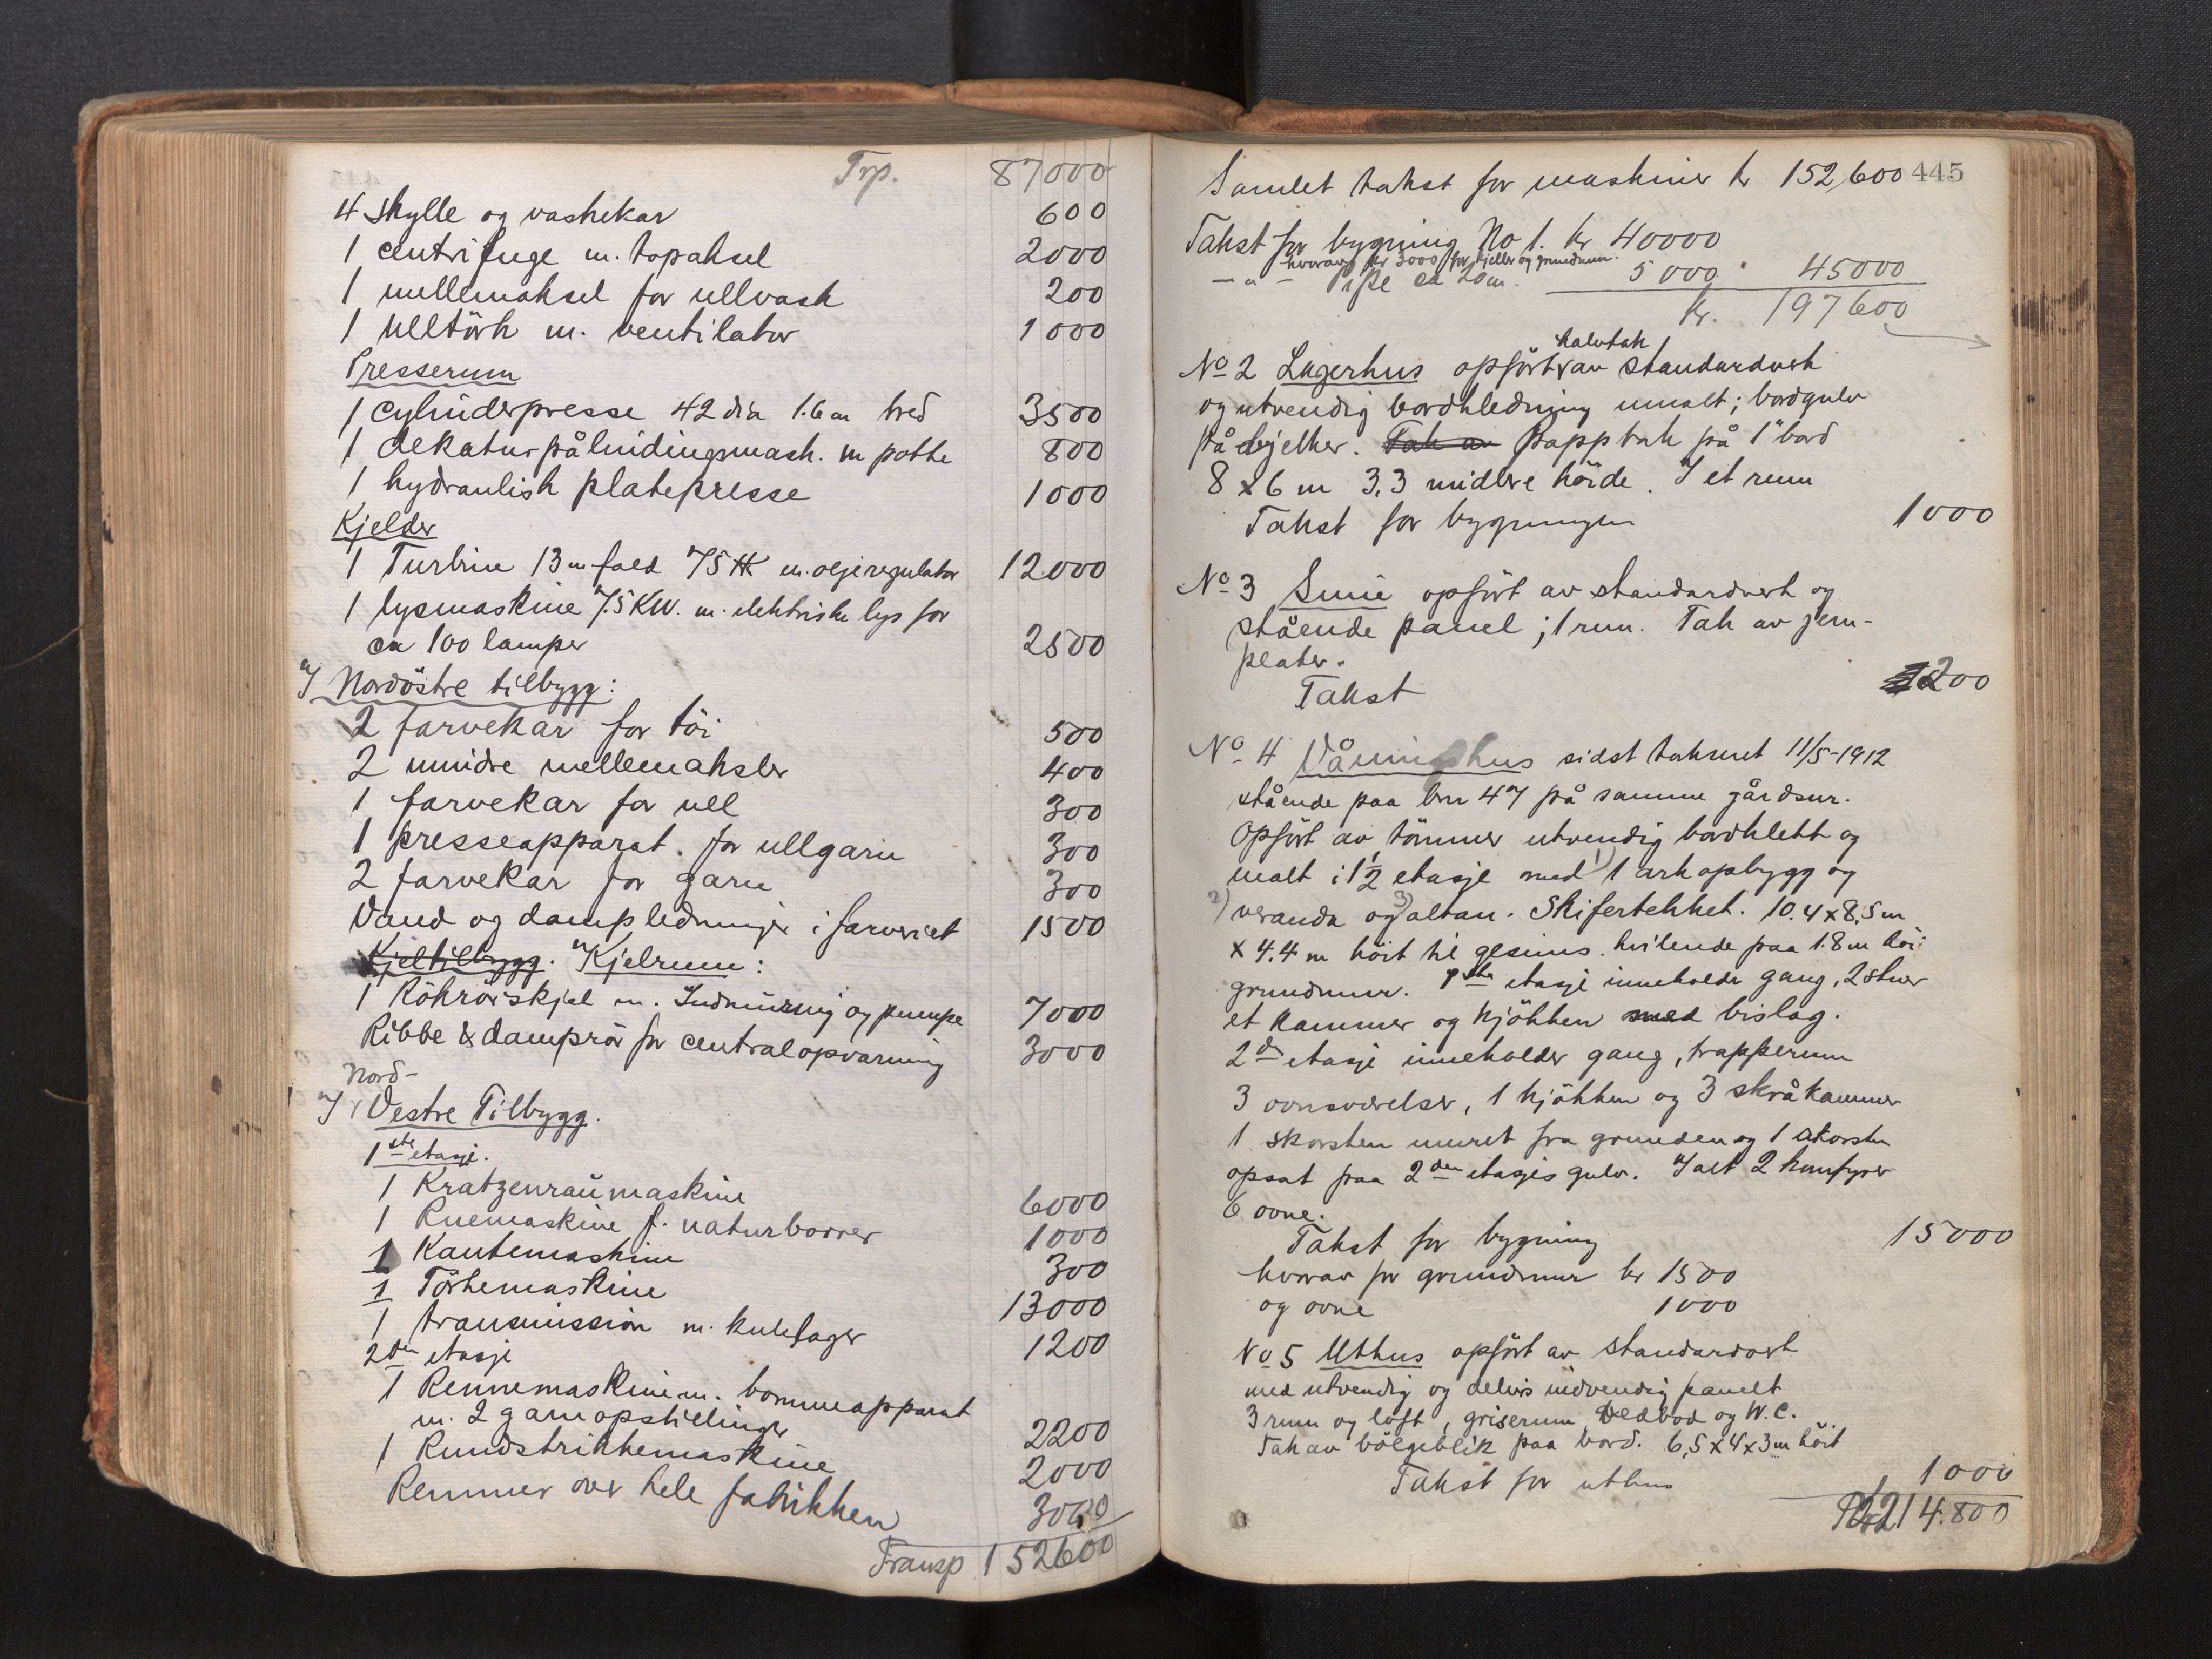 Trp. 87000
4 Skylle og vaskekar 600
1 centrifuge m. topaksel 2000
1 mellemaksel for ullvask 200
1 Ulltörk m. ventilator 1000
Presserum
1 cylinderpresse 42 dia 1.6 m bred 3500
1 dekatur pålindingsmask. m potte 800
1 hydraulisk platepresse 1000
Kjelder
1 Turbin 13 m fald 75 HK m. oljeregulator 12000
1 lysmaskine 7.5 KW. m. elektriske lys for
ca 100 lamper 2500
I Nordöstre tilbygg:
2 farvekar for töi 500
2 mindre mellemaksler 400
1 farvekar for ull 300
1 presseapparat for ullgarn 300
2 farvekar for garn 300
Vand og dampledninger i farveriet 1500
Kjeltilbygg. Kjelrum:
1 Rökrörskjel m. Indmuring og pumpe 7000
Ribbe & damprör for centralopvarming 3000
Nord-
I Vestre Tilbygg.
1ste etasje.
1 Kratzenraumaskine 6000
1 Ruemaskine f. naturborrer 1000
1 Kantemaskine 300
1 Törkemaskine 13000
1 transmission m. kulelager 1200
2den etasje
1 Rennemaskine m. bommeapparat
m. 2 garnopstillinger 2200
1 Rundstrikkemaskine 2000
Remmer over hele fabrikken 3000
Transp 152600
Samlet takst for maskiner kr 152,600 445
Takst for bygning No 1. kr 40000
hvorav kr 3000 for kjeller og grundmur.
— " — Pipe ca 20 m. 5000 45000
kr. 197600
halvtak
No 2 Lagerhus opfört av standardverk
og utvendig bordkledning umalt; bordgulv
på bjelker. Tak av Papptak på 1" bord
8 x 6 m 3.3 midlere höide. I et rum
Takst for bygningen 1000
No 3 Smie opfört av standardverk og
stående panel; 1 rum. Tak av jern-
plater.
Takst 200
No 4 Våningshus sidst takseret 11/5-1912
stående paa bnr 47 på samme gårdsnr.
Opfört av tömmer utvendig bordklett og
malt i 1½ etasje med 1) 1 arkopbygg og
2) veranda og 3) altan. Skifertekket. 10.4 x 8.5 m
x 4.4 m höit til gesims. hvilende paa 1.8 m höi
grundmur. 1ste etasje inneholder gang, 2 stuer
et kammer og kjökken med bislag.
2den etasje inneholder gang, trapperum
3 ovnsværelser, 1 kjökken og 3 skråkammer
1 skorsten muret fra grunden og 1 skorsten
opsat paa 2den etasjes gulv. I alt 2 komfyrer
6 ovne.
Takst for bygning 15000
hvorav for grundmur kr 1500
og ovne 1000
No 5 Uthus opfört av standardverk
med utvendig og delvis indvendig panelt
3 rum og loft, griserum Vedbod og W.C.
Tak av bölgeblik paa bord. 6,5 x 4 x 3 m höit
Takst for uthus 1000
Kr 214.800